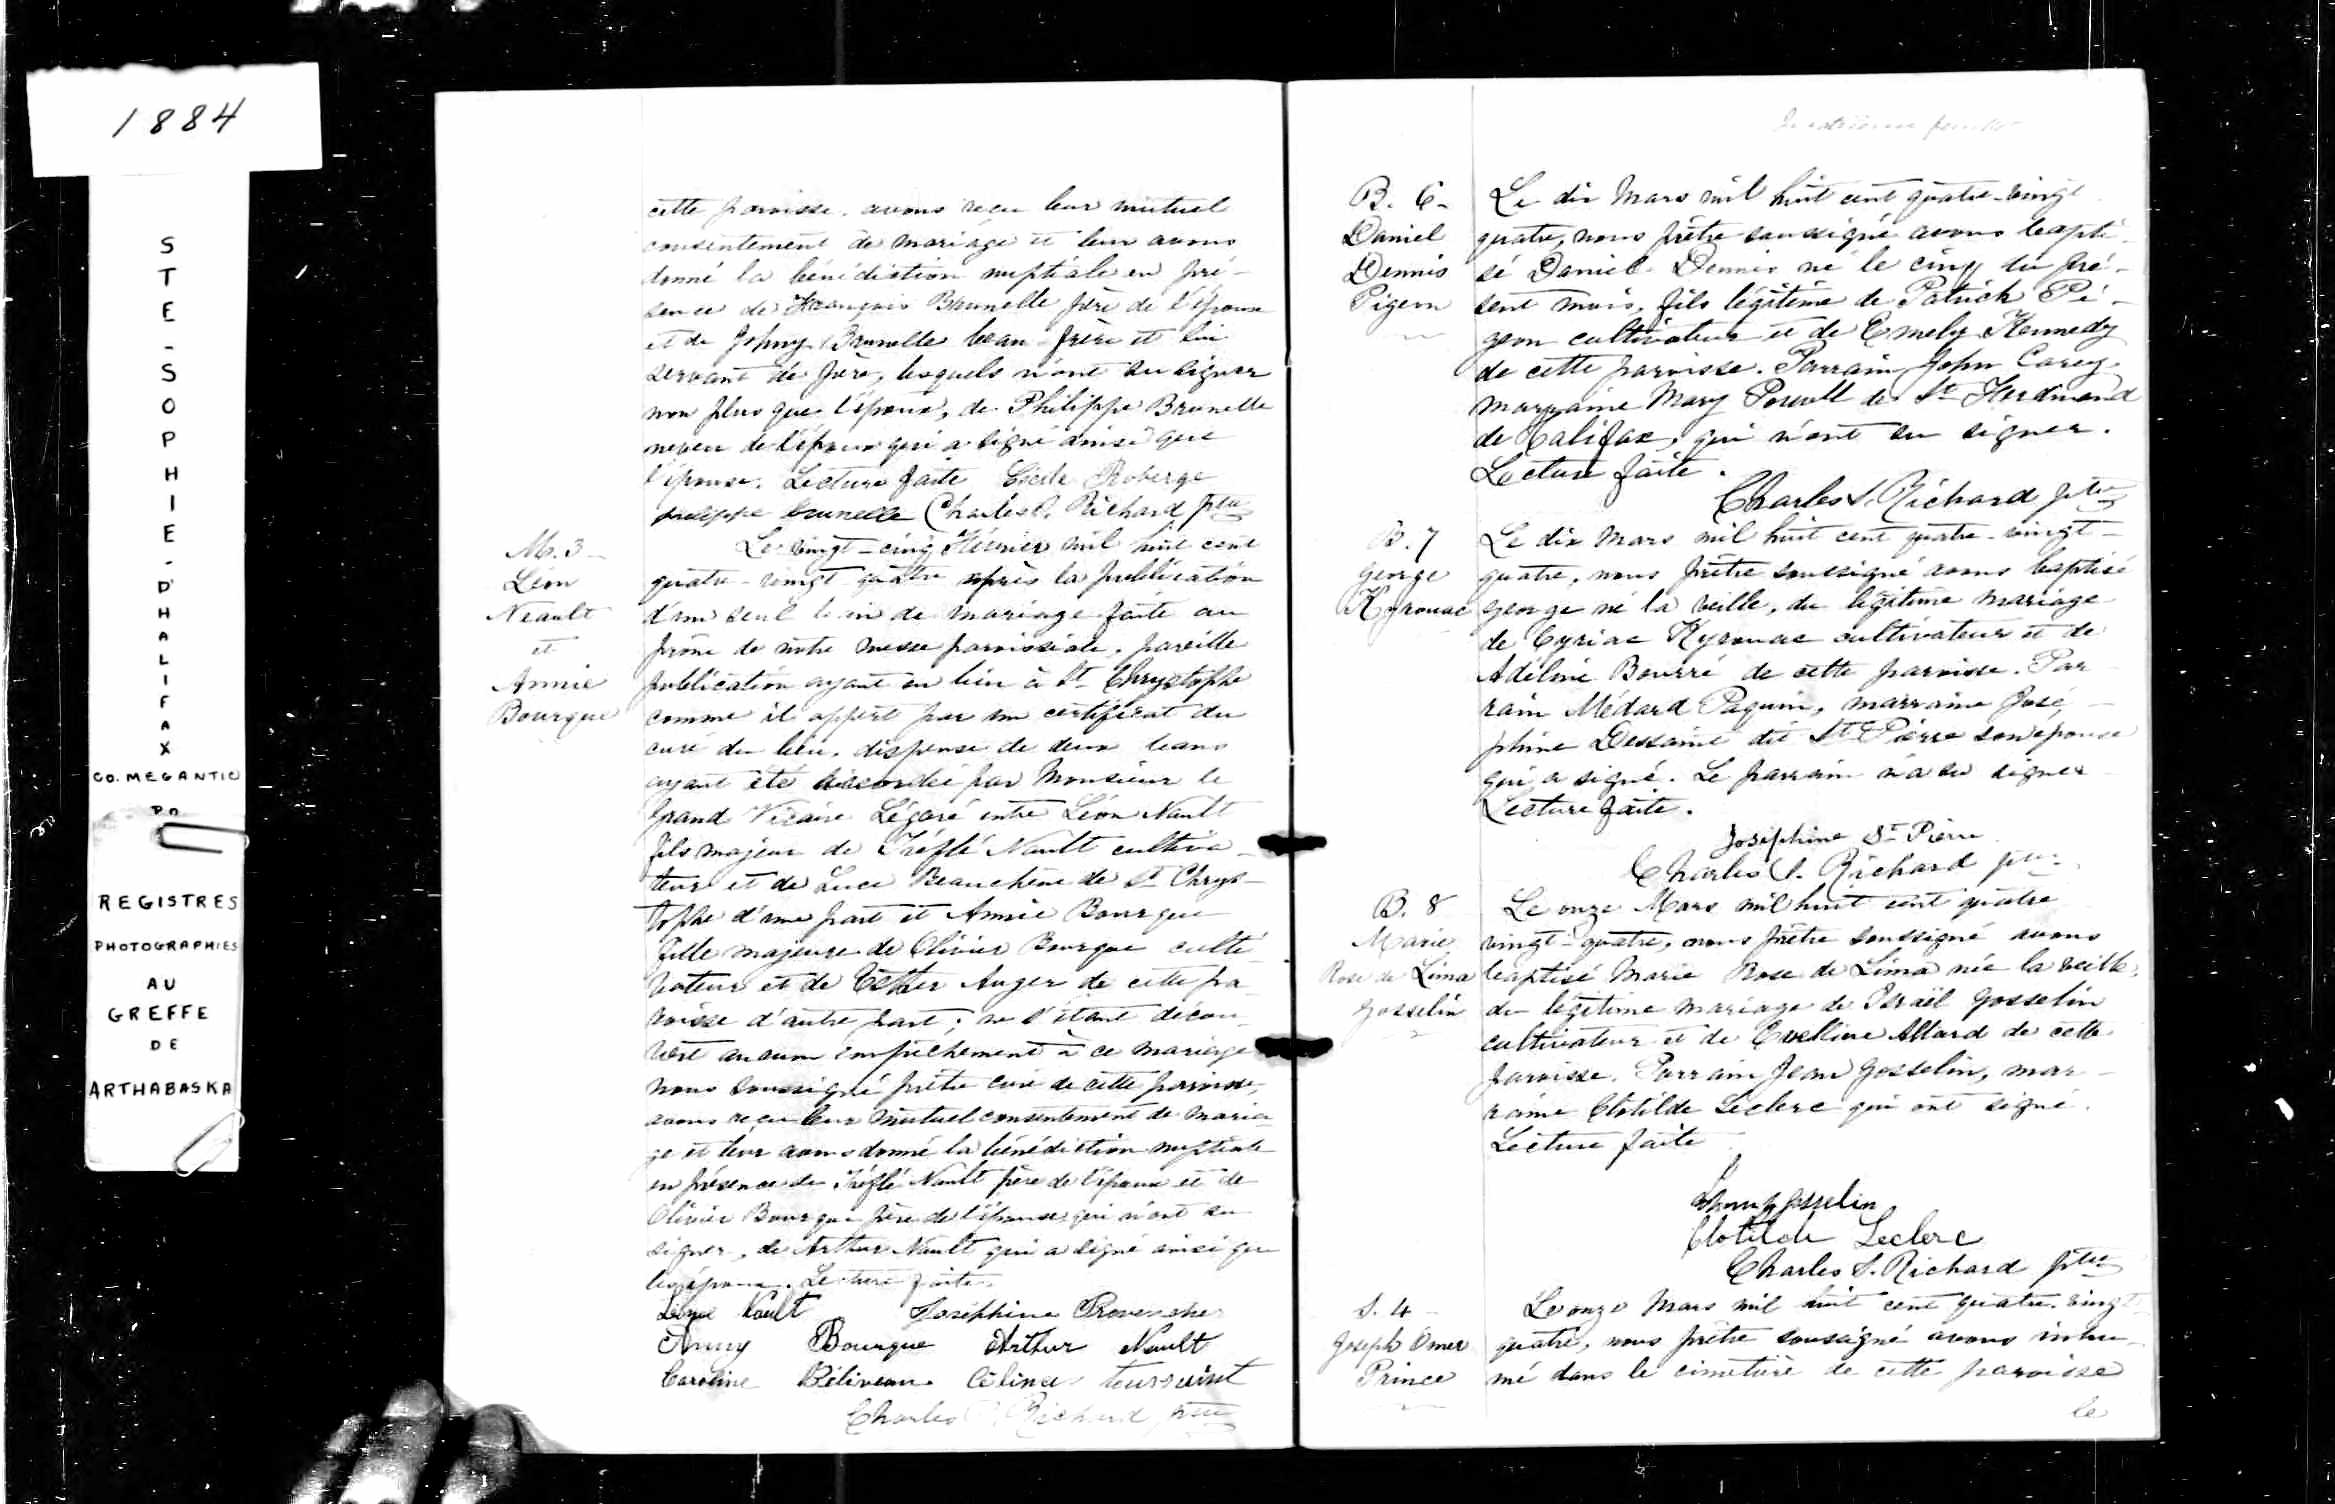 1884
STE-SOPHIE-D'HALIFAX
CO. MEGANTIC
P.Q.
REGISTRES
PHOTOGRAPHIES
AU
GREFFE
DE
ARTHABASKA
cette paroisse. avons reçu leur mutuel
consentement de mariage et leur avons
donné la bénédiction nuptiale en pré-
sence de François Brunelle père de l'époux
et de Johny Brunelle beau-frère et lui
servant de père, lesquels n'ont su signer
non plus que l'époux, de Philippe Brunelle
neveu de l'époux qui a signé ainsi que
l'épouse. Lecture faite Cécile Roberge
philippe brunelle Charles S. Richard ptre
M. 3
Léon
Neault
et
Annie
Bourque
Le vingt-cinq Février mil huit cent
quatre-vingt quatre après la publication
d'un seul ban de mariage faite au
prône de notre messe paroissiale, pareille
publication ayant eu lieu à St Chrystophe
comme il appert par un certificat du
curé du lieu, dispense de deux bans
ayant été accordée par Monsieur le
Grand Vicaire Légaré entre Léon Nault
fils majeur de Tréflé Nault cultiva-
teur et de Luce Beauchêne de St Chrys-
tophe d'une part et Annie Bourque
fille majeure de Olivier Bourque culti
vateur et de Esther Auger de cette pa
roisse d'autre part; ne s'étant décou-
vert aucun empêchement à ce mariage
nous soussigné prêtre curé de cette paroisse,
avons reçu leur mutuel consentement de maria
ge et leur avons donné la bénédiction nuptiale
en présence de Tréflé Nault père de l'époux et de
Olivier Bourque père de l'épouse qui n'ont su
signer, de Arthur Nault qui a signé ainsi que
les époux. Lecture faite.
Nault Joséphine Provencher
Anny Bourque Arthur Nault
Caroline Béliveau Célina toussaint
Charles S. Richard ptre
B. 6-
Daniel
Dennis
Pigeon
Le dix Mars mil huit cent quatre-vingt
quatre, nous prêtre soussigné avons bapti-
sé Daniel Dennis né le cinq du pré-
sent mois, fils légitime de Patrick Pi-
geon cultivateur et de Emely Kennedy
de cette paroisse. Parrain John Carey
marraine Mary Powell de St Ferdinand
de Halifax, qui n'ont su signer.
Lecture faite.
Charles S. Richard ptre
B. 7
George
Kyrouac
Le dix Mars mil huit cent quatre-vingt-
quatre, nous prêtre soussigné avons baptisé
George né la veille, du légitime mariage
de Cyriac Kyrouac cultivateur et de
Adéline Bourré de cette paroisse. Par
rain Médard Paquin, marraine José-
phine Dessaint dit St Pierre son épouse
qui a signé. Le parrain n'a su signer
Lecture faite.
Joséphine St Pierre
Charles S. Richard ptre
B. 8
Marie
Rose de Lima
Gosselin
Le onze Mars mil huit cent quatre
vingt-quatre, nous prêtre soussigné avons
baptisé Marie Rose de Lima née la veille,
du légitime mariage de Israël Gosselin
cultivateur et de Eveline Allard de cette
paroisse. Parrain Jean Gosselin, mar-
raine Clotilde Leclerc qui ont signé.
Lecture faite
Gosselin
Clotilde Leclerc
Charles S. Richard ptre
S. 4-
Joseph Omer
Prince
Le onze Mars mil huit cent quatre-vingt
quatre, nous prêtre soussigné avons inhu-
mé dans le cimetière de cette paroisse
le